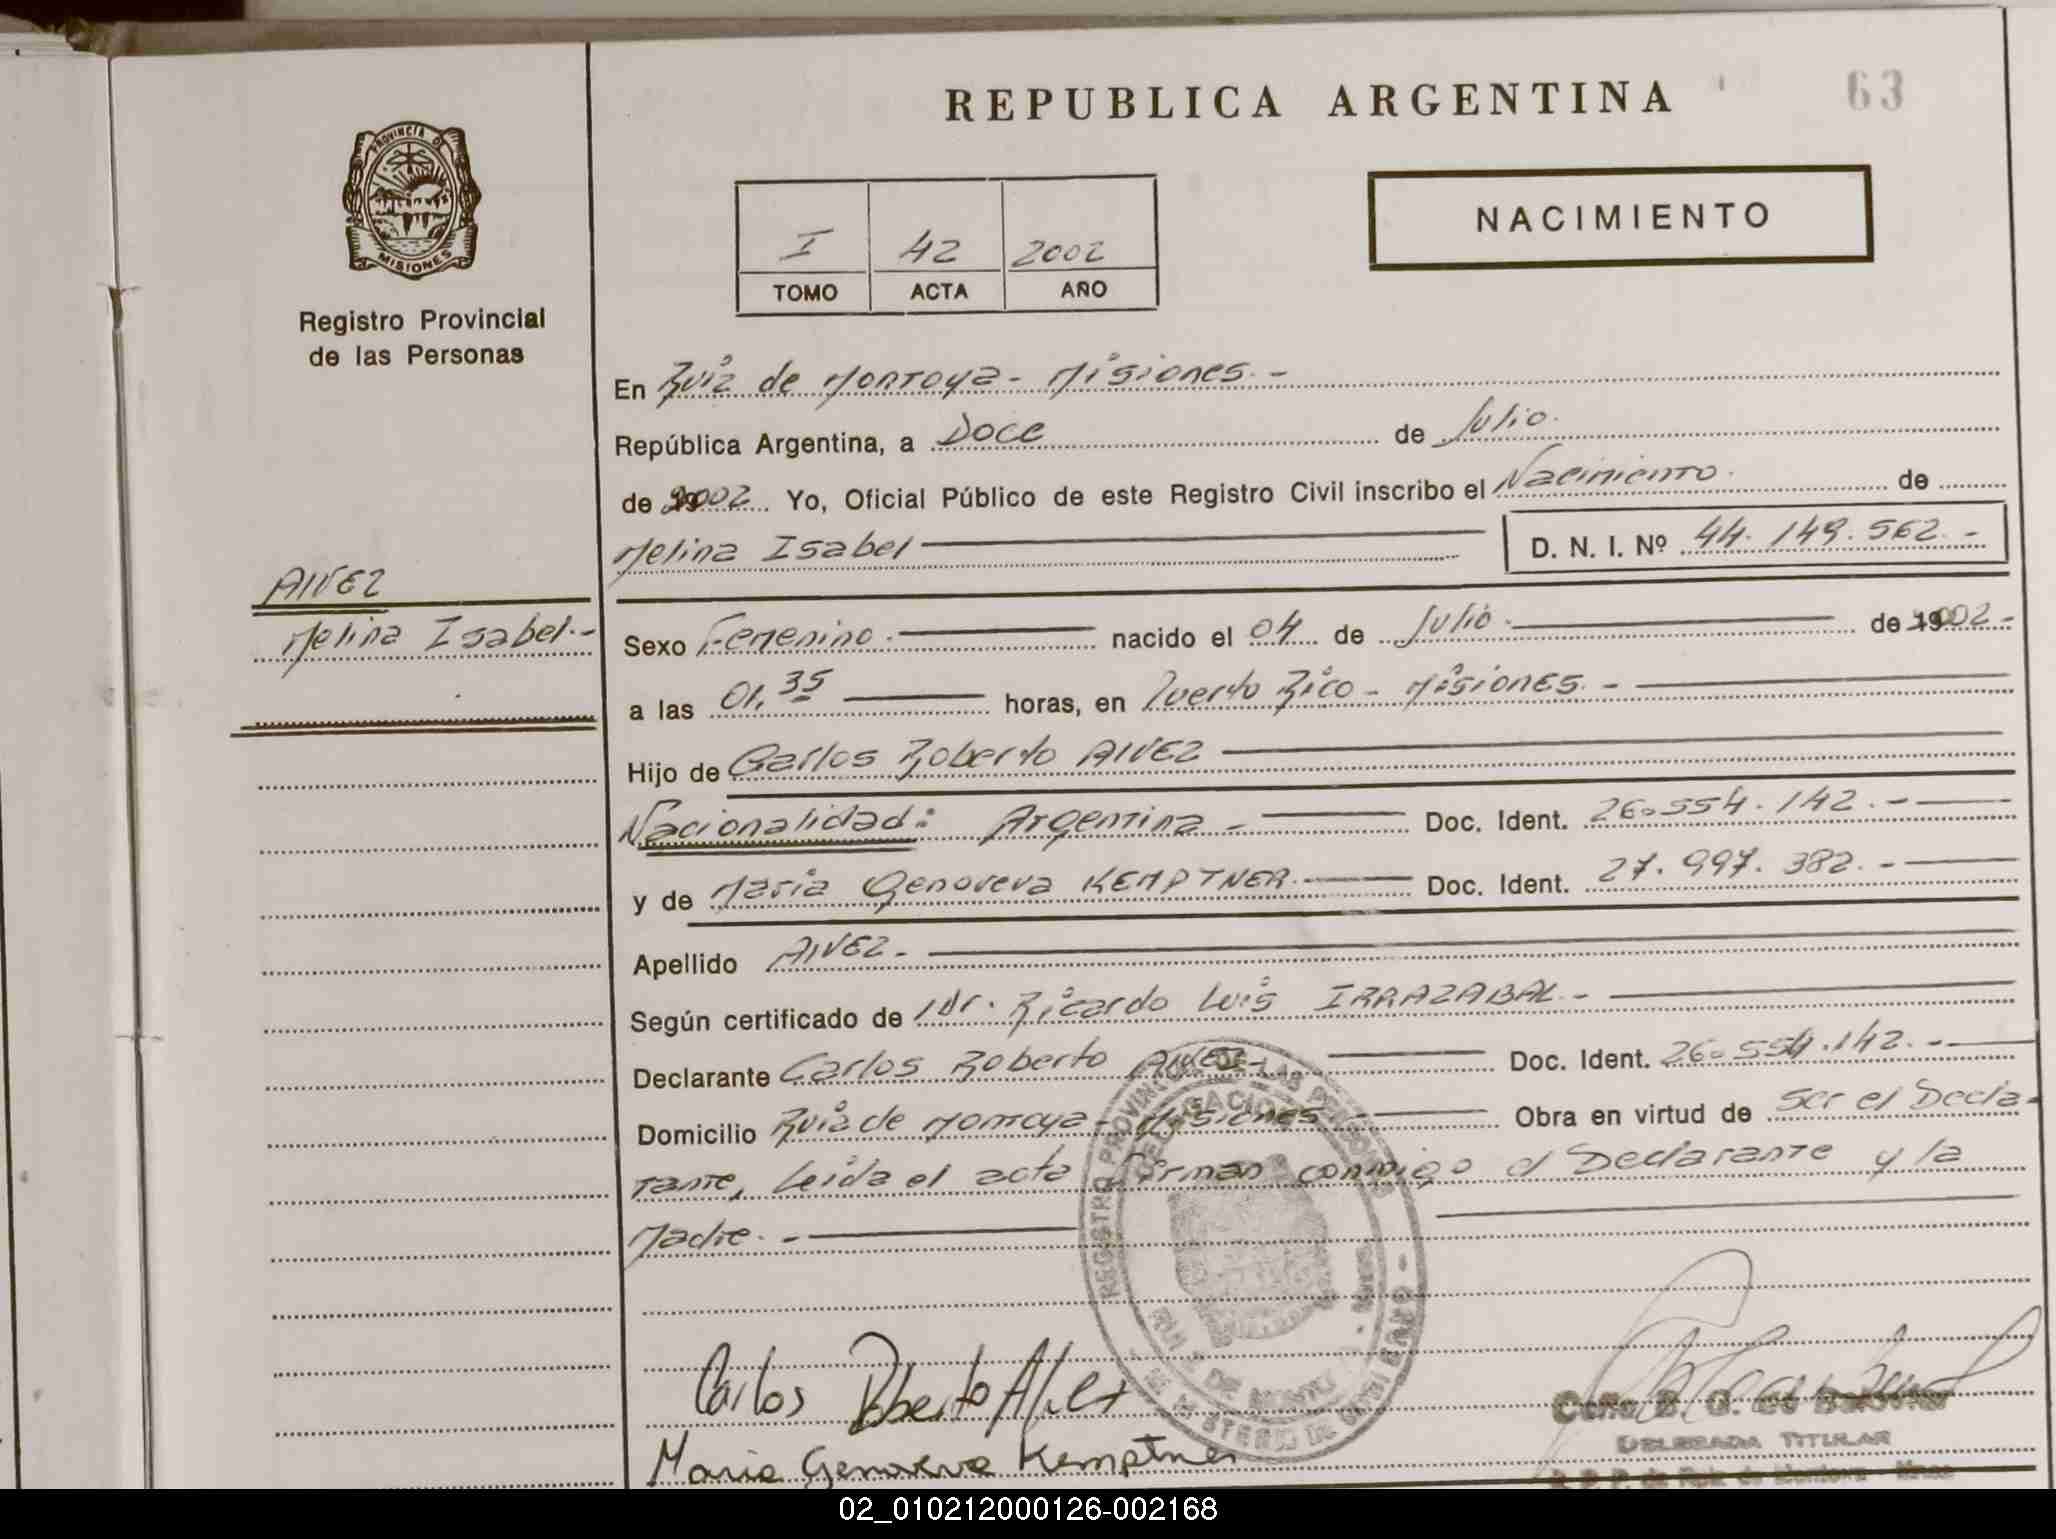 REPUBLICA ARGENTINA
63
PROVINCIA DE
MISIONES
Registro Provincial
de las Personas
I 42 2002
TOMO ACTA AÑO
NACIMIENTO
En Ruiz de Montoya - Misiones. -
República Argentina, a Doce de Julio.
de 2002 Yo, Oficial Público de este Registro Civil inscribo el Nacimiento. de
Melina Isabel
D. N. I. Nº 44.149.562.-
ALVEZ
Melina Isabel.-
Sexo Femenino. nacido el 04 de Julio. de 2002-
a las 01,35 horas, en Puerto Rico - Misiones. -
Hijo de Carlos Roberto ALVEZ
Nacionalidad: Argentina - Doc. Ident. 26.554.142.-
y de Maria Genoveva KEMPTNER. Doc. Ident. 27.997.382.-
Apellido ALVEZ.-
Según certificado de Dr. Ricardo Luis IRRAZABAL.-
Declarante Carlos Roberto ALVEZ- Doc. Ident. 26.554.142.-
Domicilio Ruiz de Montoya - Misiones - Obra en virtud de ser el Decla-
rante, Leida el acta firman conmigo el Declarante y la
Madre. -
REGISTRO PROVINCIAL DE LAS PERSONAS
Carlos Roberto Alvez
Maria Genoveva Kemptner
DELEGADA TITULAR
R. P. P. de Ruiz de Montoya - Mnes
02_010212000126-002168